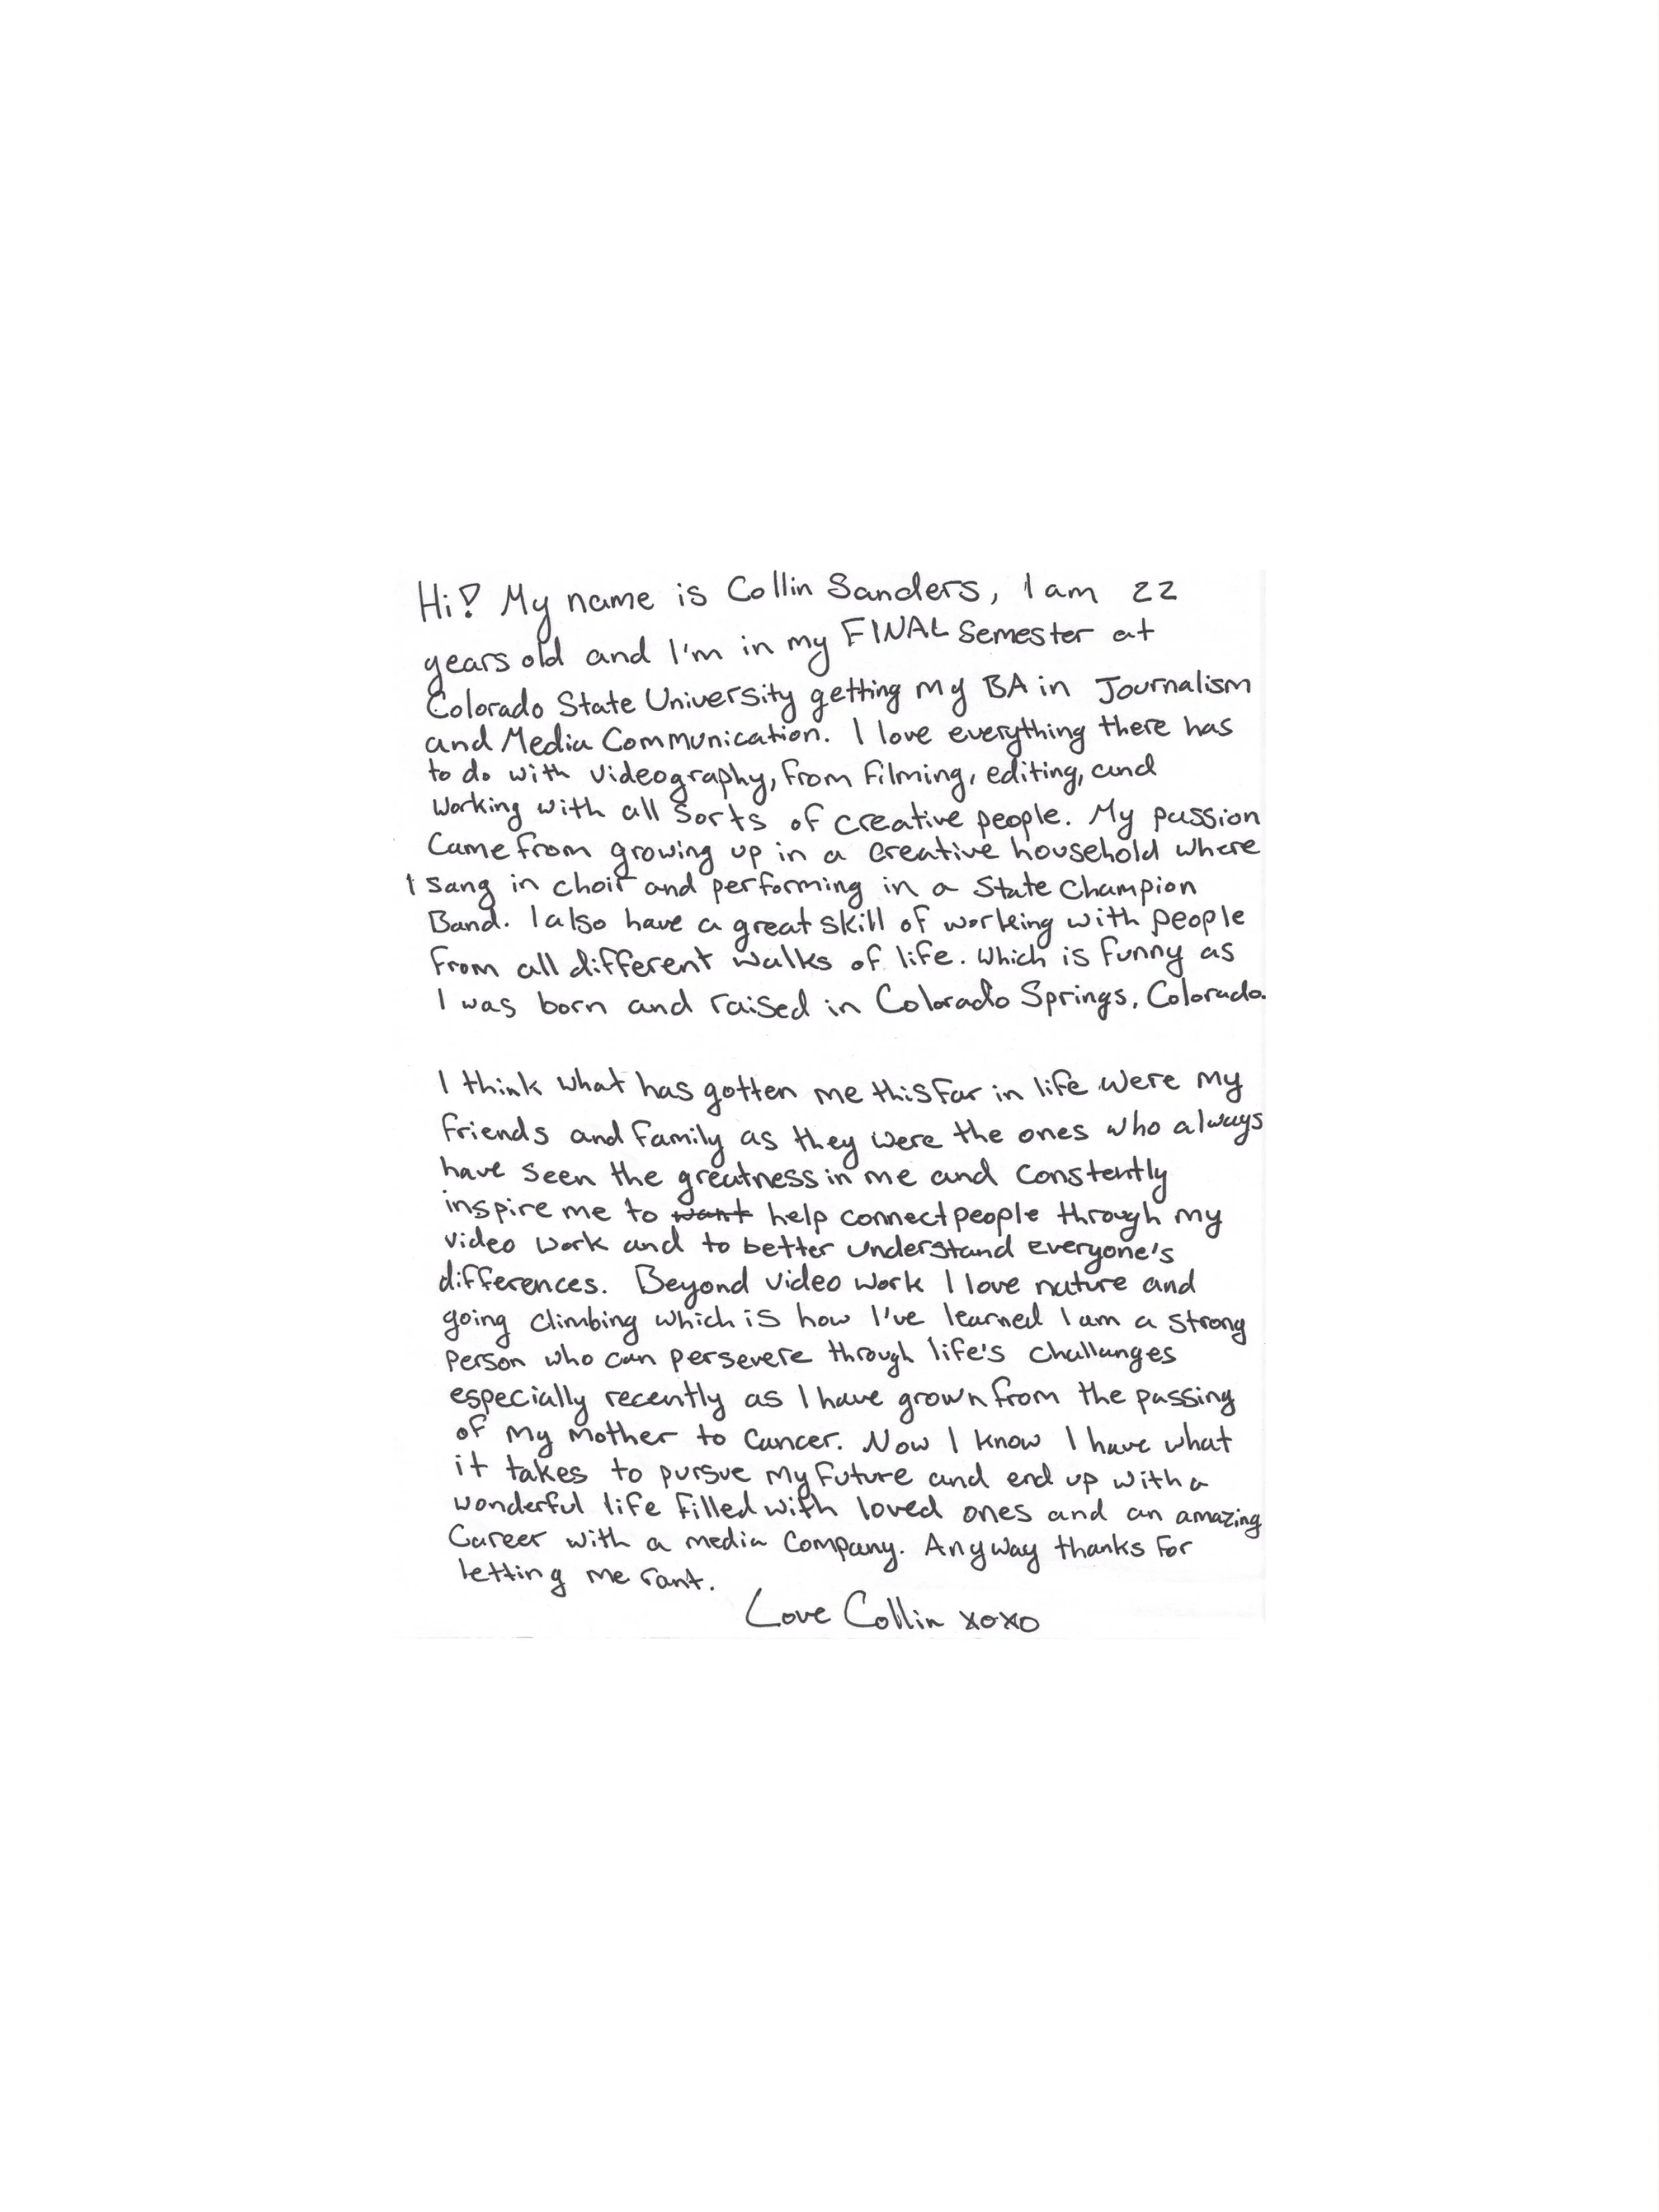 Hi! My name is Collin Sanders, I am 22
years old and I'm in my FINAL Semester at
Colorado State University getting my BA in Journalism
and Media Communication. I love everything there has
to do with videography, from filming, editing, and
working with all sorts of creative people. My passion
came from growing up in a creative household where
I sang in choir and performing in a State Champion
Band. I also have a great skill of working with people
from all different walks of life. Which is funny as
I was born and raised in Colorado Springs, Colorado.
I think what has gotten me this far in life were my
friends and family as they were the ones who always
have seen the greatness in me and constently
inspire me to want help connect people through my
video work and to better understand everyone's
differences. Beyond video work I love nature and
going climbing which is how I've learned I am a strong
person who can persevere through life's challanges
especially recently as I have grown from the passing
of my mother to cancer. Now I know I have what
it takes to pursue my future and end up with a
wonderful life filled with loved ones and an amazing
career with a media company. Anyway thanks for
letting me rant.
Love Collin xoxo